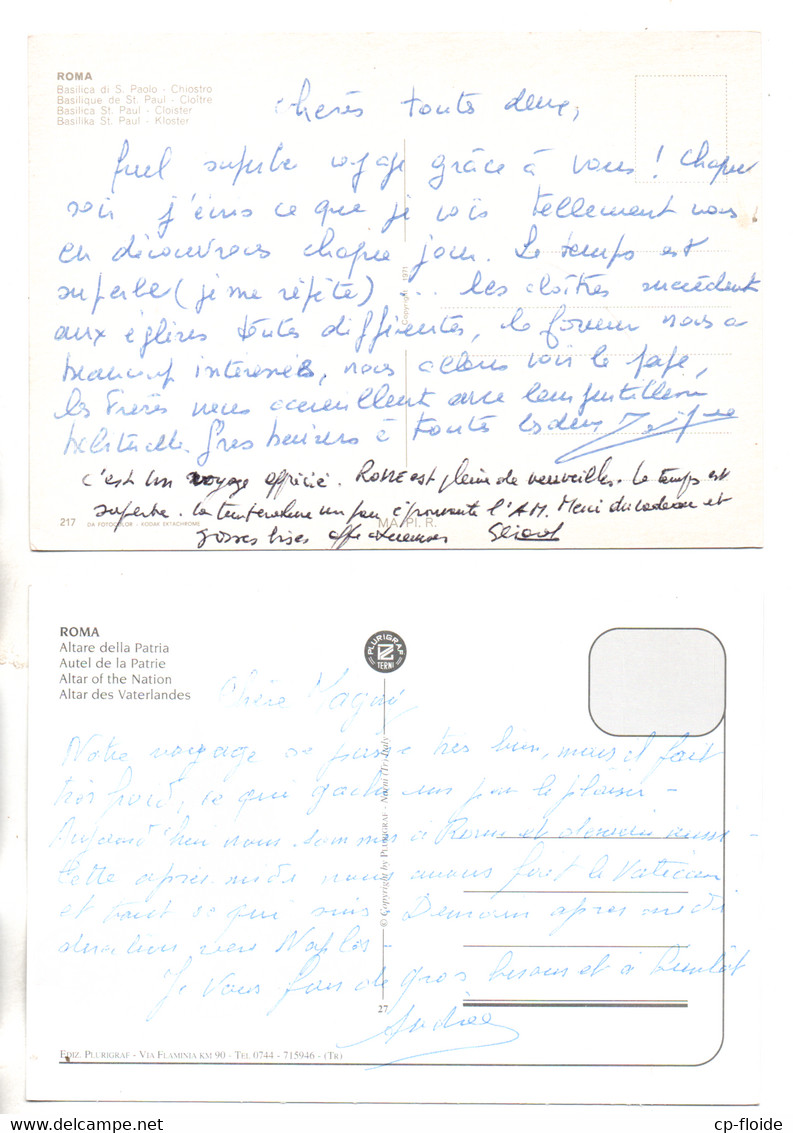 ROMA
Basilica di S. Paolo - Chiostro
Basilique de St. Paul - Cloître
Basilica St. Paul - Cloister
Basilika St. Paul - Kloster
chères toutes deux,
Quel superbe voyage grâce à vous ! Chaque
soir j'écris ce que je vois tellement nous
en découvrons chaque jour. Le temps est
superbe (je me répète) ... les cloîtres succèdent
aux églises toutes différentes, le forum nous a
beaucoup intéressés, nous allons voir le pape,
les Frères nous accueillent avec leur gentillesse
habituelle. Gros baisers à toutes les deux
c'est un voyage apprécié. ROME est pleine de merveilles. Le temps est
superbe. La température un peu éprouvante l'A.M. Merci du cadeau et
grosses bises affectueuses
Copyright 1971
217 DA FOTOCOLOR - KODAK EKTACHROME
MA.PI.R.
ROMA
Altare della Patria
Autel de la Patrie
Altar of the Nation
Altar des Vaterlandes
PLURIGRAF
TERNI
Chère Maguy
Notre voyage se passe très bien, mais il fait
très froid, ce qui gache un peu le plaisir -
Aujourd'hui nous sommes à Rome et demain aussi -
Cette après midi nous avons fait le Vatican
et tout ce qui suit. Demain après midi
direction vers Naples -
Je vous fais de gros bisous et à bientôt
Andrée
© Copyright by PLURIGRAF - Narni (Tr)-Italy
27
EDIZ. PLURIGRAF - VIA FLAMINIA KM 90 - TEL 0744 - 715946 - (TR)
cp-floide